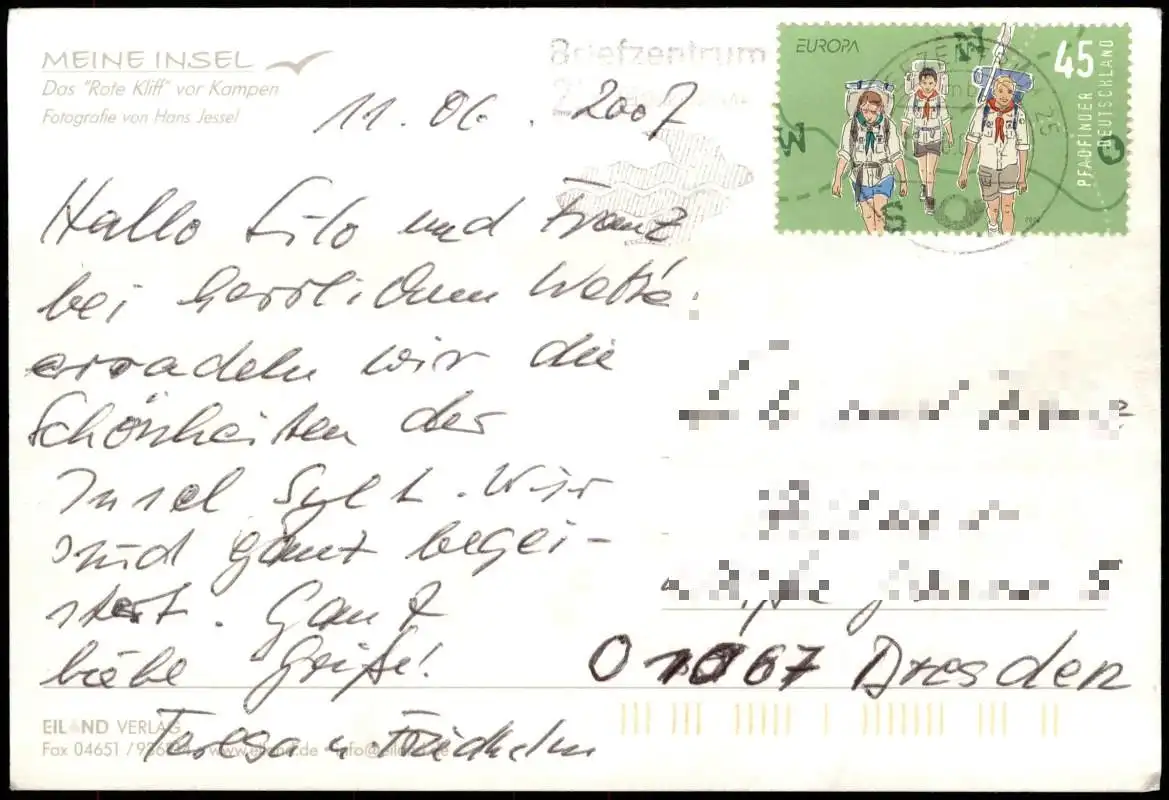 MEINE INSEL
Das "Rote Kliff" vor Kampen
Fotografie von Hans Jessel
Briefzentrum
EUROPA
45
PFADFINDER
DEUTSCHLAND
N
W
O
S
11. 06. 2007
Hallo Lilo und Franz
bei herrlichem Wetter
erradeln wir die
Schönheiten der
Insel Sylt. Wir
sind ganz begei-
stert. Ganz
liebe Grüße!
Teresa u. Friedhelm
01067 Dresden
EILAND VERLAG
Fax 04651 / www.eiland.de info@eiland.de